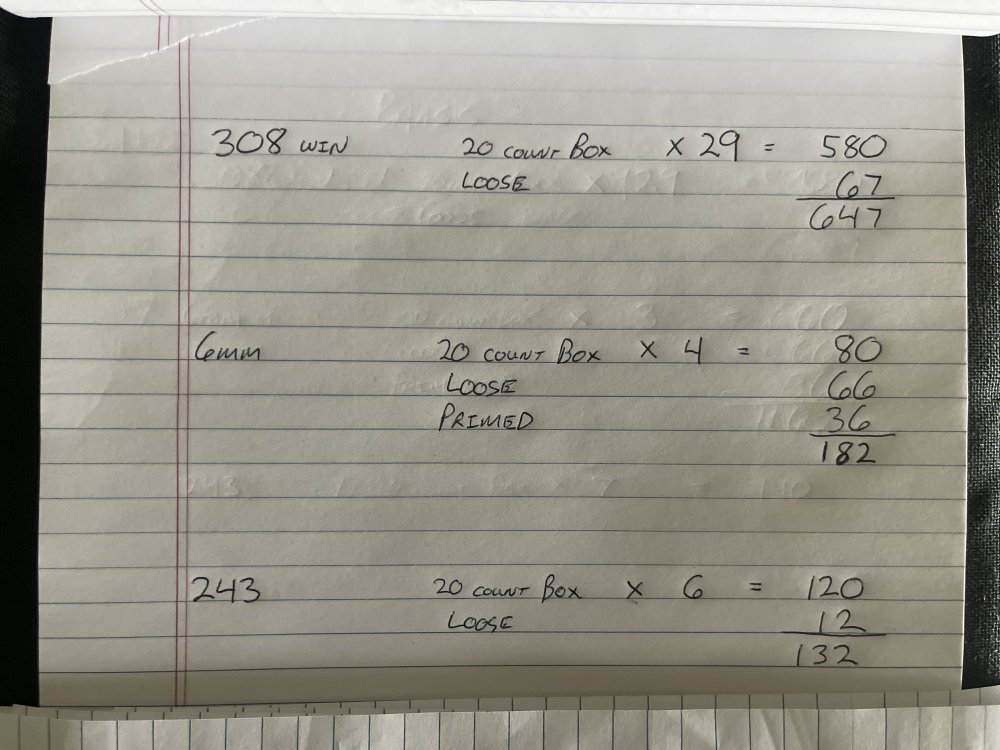 308 WIN 20 COUNT BOX X 29 = 580
LOOSE 67
647
6mm 20 COUNT BOX X 4 = 80
LOOSE 66
PRIMED 36
182
243 20 COUNT BOX X 6 = 120
LOOSE 12
132